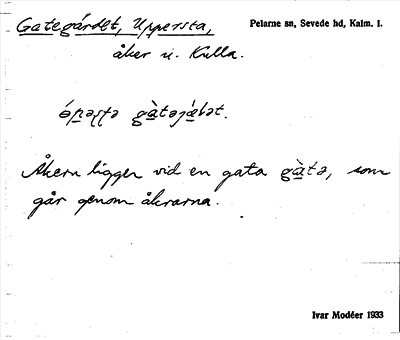 Gategärdet, Uppersta,
Pelarne sn, Sevede hd, Kalm. l.
åker u. Kulla.
gàtəjæ̀lət.
Åkern ligger vid en gata gàtə, som
går genom åkrarna.
Ivar Modéer 1933